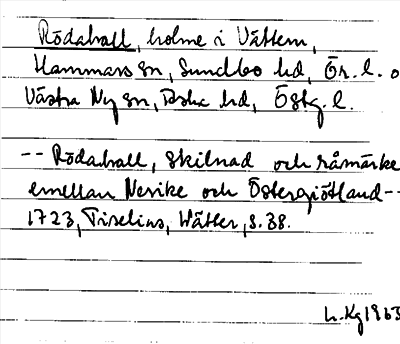 Rödahall, holme i Vättern,
Hammars sn, Sundbo hd, Ör. l. o
Västra Ny sn, Aska hd, Östg. l.
-- Rödahall, skilnad och råmärke
emellan Nerike och Östergiötland--
1723, Tiselius, Wätter, s. 38.
1963